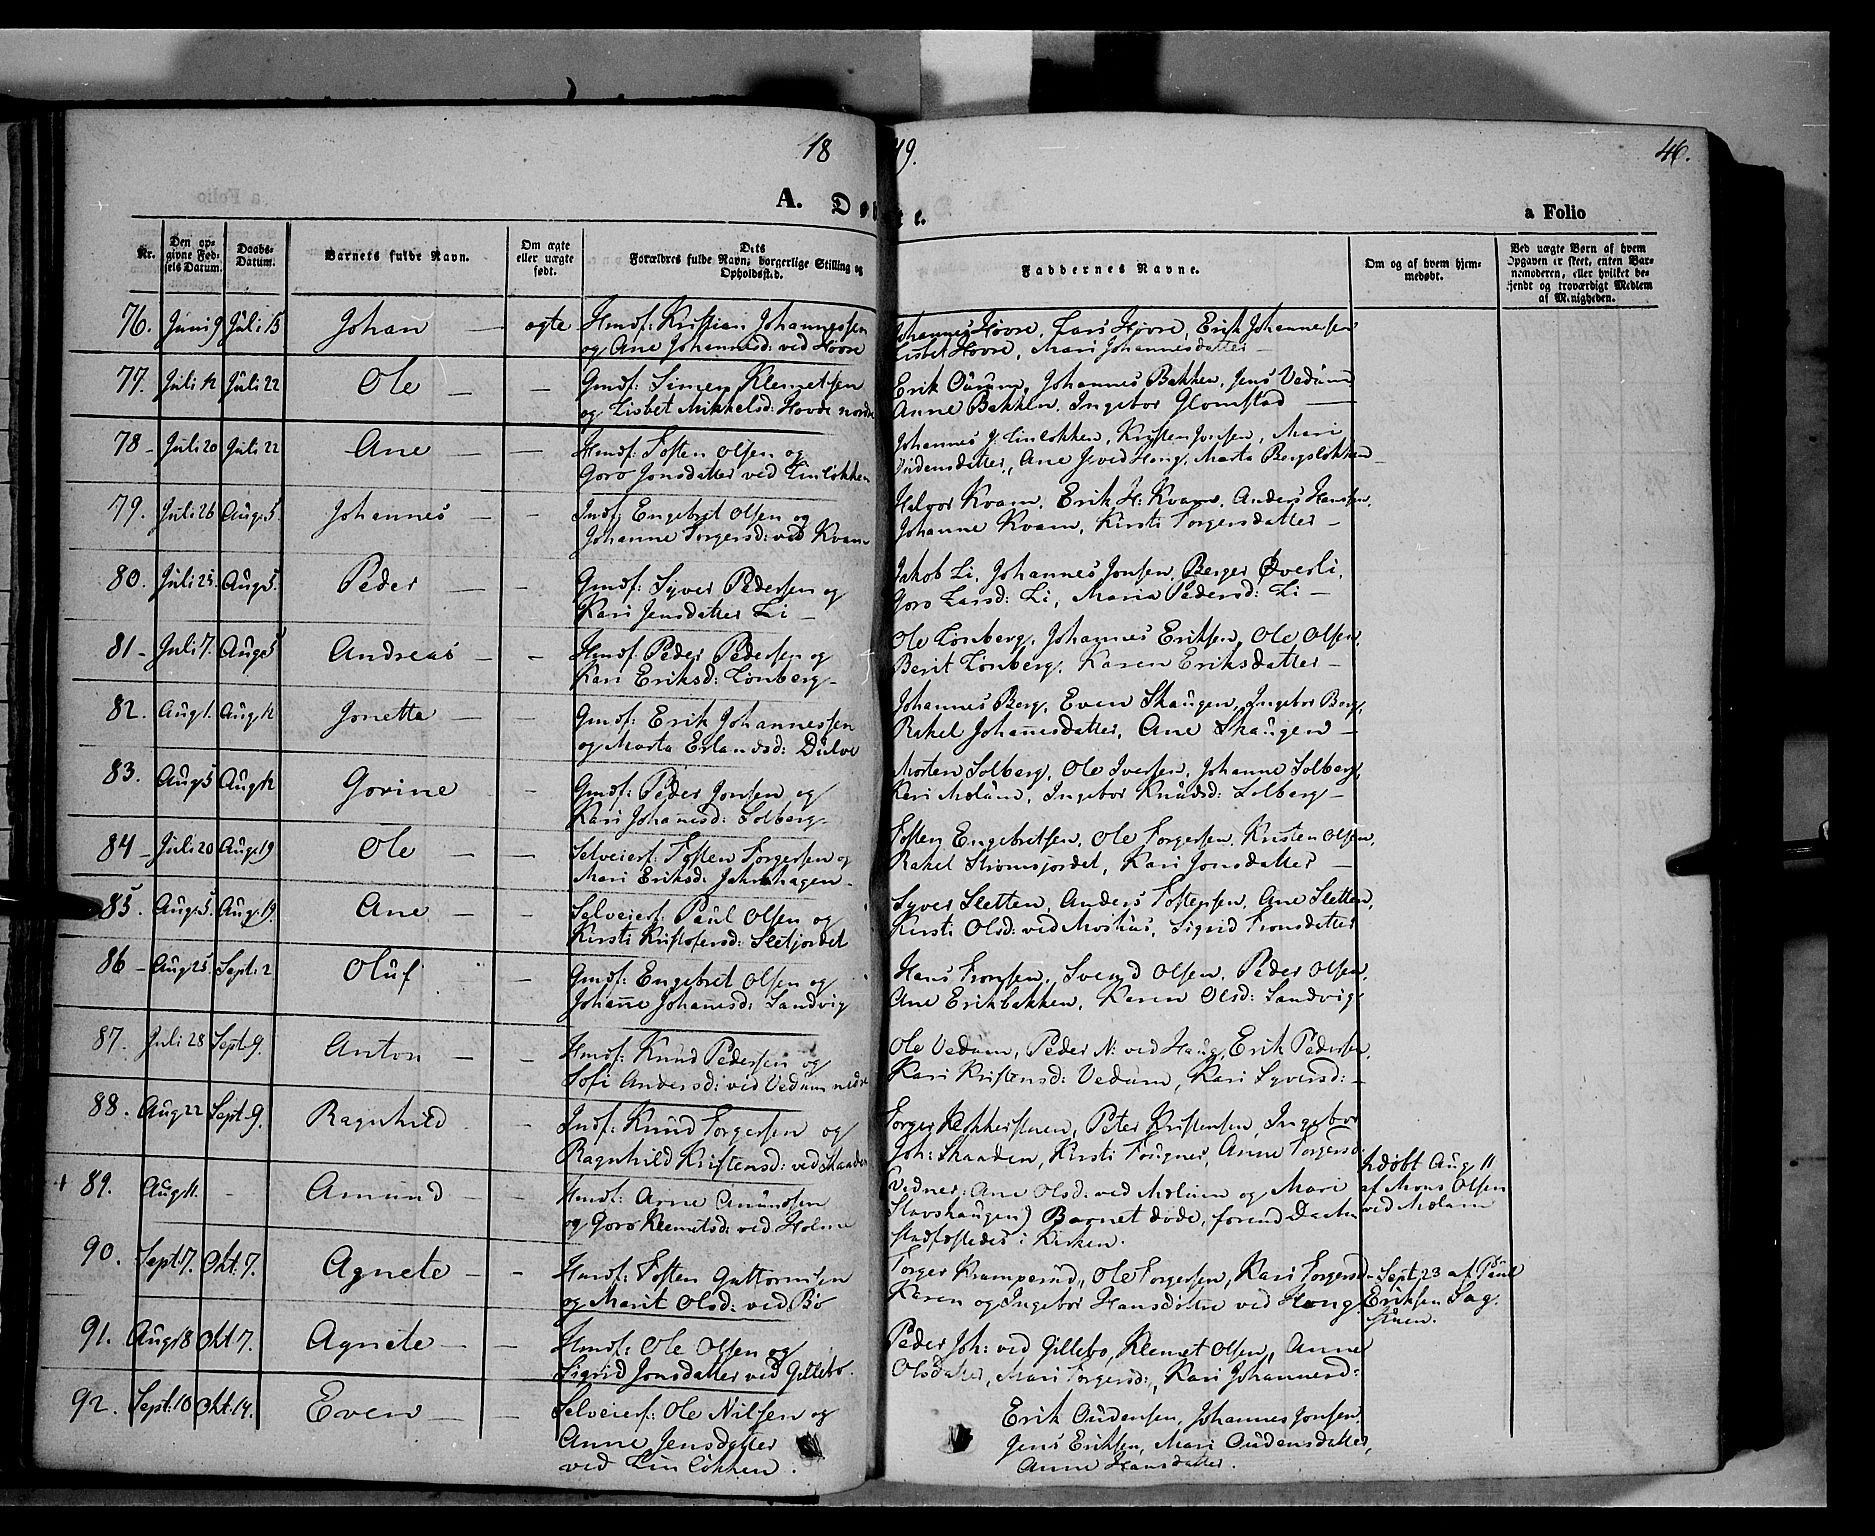 1849.
46.
A. Døbte.
a Folio
Nr.
Den opgivne Fødsels Datum.
Daabs-Datum.
Barnets fulde Navn.
Om ægte eller uægte født.
Dets Forældres fulde Navn, borgerlige Stilling og Opholdssted.
Faddernes Navne.
Om og af hvem hjemmedøbt.
Ved uægte Børn af hvem Opgaven er skeet, enten Barnemoderen, eller hvilket bekjendt og troværdigt Medlem af Menigheden.
76. Juni 9 Juli 15 Johan — ægte Hmdf: Kristian Johannessen Johannes Hovre, Lars Hovre, Erik Johannesen
og Ane Johannesd: ved Hovre Lisbet Hovre, Mari Johannesdatter —
77. Juli 12 Juli 22 Ole — — Gmdf: Simen Klemetsen Erik Ourum, Johannes Bakken, Jens Vedum
og Lisbet Mikkelsd: Hovde nordre Anne Bakken, Ingebor Glomstad —
78 – Juli 20 Juli 22 Ane — — Hmdf: Tosten Olsen og Johannes J: Linløkken, Kristen Jonsen, Mari
Goro Jonsdatter ved Linløkken Oudensdatter, Ane J: ved Haug, Marta Bergsløkken
79. Juli 26 Aug: 5. Johannes — — Indf: Engebret Olsen og Halvor Kvam, Erik H: Kvam, Anders Hansen,
Johanne Torgersd: ved Kvam Johanne Kvam, Kirsti Torgersdatter —
80. Juli 25. Aug: 5. Peder — — Gmdf: Syver Pedersen og Jakob Li, Johannes Jonsen, Berger Øverli,
Kari Jensdatter Li — Goro Larsd: Li, Maria Pedersd: Li —
81 – Juli 7. Aug: 5 Andreas — — Hmdf: Peder Pedersen og Ole Lønberg, Johannes Eriksen, Ole Olsen,
Kari Eriksd: Lønberg – Berit Lønberg, Karen Eriksdatter —
82. Aug: 1. Aug: 12 Jonetta — — Gmdf: Erik Johannessen Johannes Berg, Even Skaugen, Ingebor Berg,
og Marta Erlandsd: Dulve Rakel Johanesdatter, Ane Skaugen —
83. Aug: 5 Aug: 12 Govine — Gmdf: Peder Jonsen og Morten Solberg, Ole Iversen, Johanne Solberg,
Kari Johanesd: Solberg – Kari Molum, Ingebor Knudsd: Solberg —
84 – Juli 20 Aug: 19 Ole — — Selveierf: Tosten Torgersen og Tosten Engebretsen, Ole Torgersen, Kristen Olsen,
Mari Eriksd: Jahrhagen – Rakel Strømsjordet, Kari Jonsdatter —
85. Aug: 5. Aug: 19. Ane — — Selveierf: Paul Olsen og Syver Sletten, Anders Tostensen, Ane Sletten,
Kirsti Kristofersd: Sletjordet Kirsti Olsd: ved Moshus, Sigrid Tronsdatter
86 – Aug: 25. Sept: 2 Oluf — — Gmdf: Engebret Olsen og Hans Tronsen, Svend Olsen, Peder Olsen,
Johane Johanesd: Sandvig Ane Erikbakken, Karen Olsd: Sandvig
87. Juli 28 Sept: 9. Anton — — Hmdf: Knud Pedersen og Ole Vedum, Peder N: ved Haug, Erik Pedersen,
Sofi Andersd: ved Vedum nedre Kari Kristensd: Vedum, Kari Syversd: —
88. Aug: 22 Sept: 9. Ragnhild — Indf: Knud Torgersen og Torger Kokkerstuen, Peter Kristensen, Ingebor
Ragnhild Kristensd: ved Skaaden Joh: Skaaden, Kirsti Fougner, Anne Torgersd
+ 89. Aug: 11. – Amund — – Hmdf: Arne Amundsen Vidner: Ane Olsd: ved Molum og Mari hdøbt Aug: 11
og Goro Klemetsd: ved Holme Slavshaugen) Barnet døde, forend Daaben af Mons Olsen
stadfæstedes i Kirken. ved Molum
90. Sept: 7. Okt: 7. Agnete — – Hmdf: Tosten Guttormsen Torger Kramperud, Ole Torgersen, Kari Torgersd – Sept. 23 af Paul
og Marit Olsd: ved Bø Karen og Ingebor Hansdøttre ved Haug Eriksen Sag-
stuen.
91. Aug: 18 Okt: 7. Agnete — — Hmdf: Ole Olsen og Peder Joh: ved Gillebo, Klemet Olsen, Anne
Sigrid Jonsdatter ved Gillebo. Olsdatter, Mari Torgersd:, Kari Johannesd:
92. Sept: 10 Okt: 14. Even — — Selveierf: Ole Nilsen og Erik Oudensen, Johannes Jonsen,
Anne Jensdatter Jens Eriksen, Mari Oudensdatter,
ved Linløkken. Anne Hansdatter.